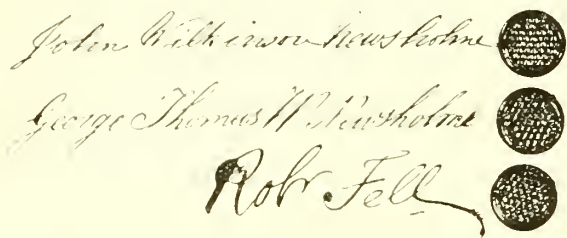 John Wilkinson Newsholme
George Thomas W. Newsholme
Robt. Fell